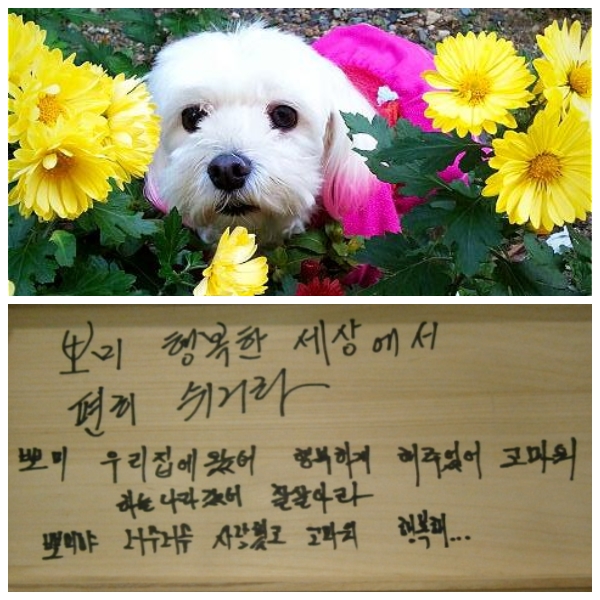 뽀미 행복한 세상에서
편히 쉬거라
뽀미 우리집에 왔어 행복하게 해주었어 고마워
하늘나라 갔어 잘살아라
뽀미야 사랑했고 고마워 행복해...